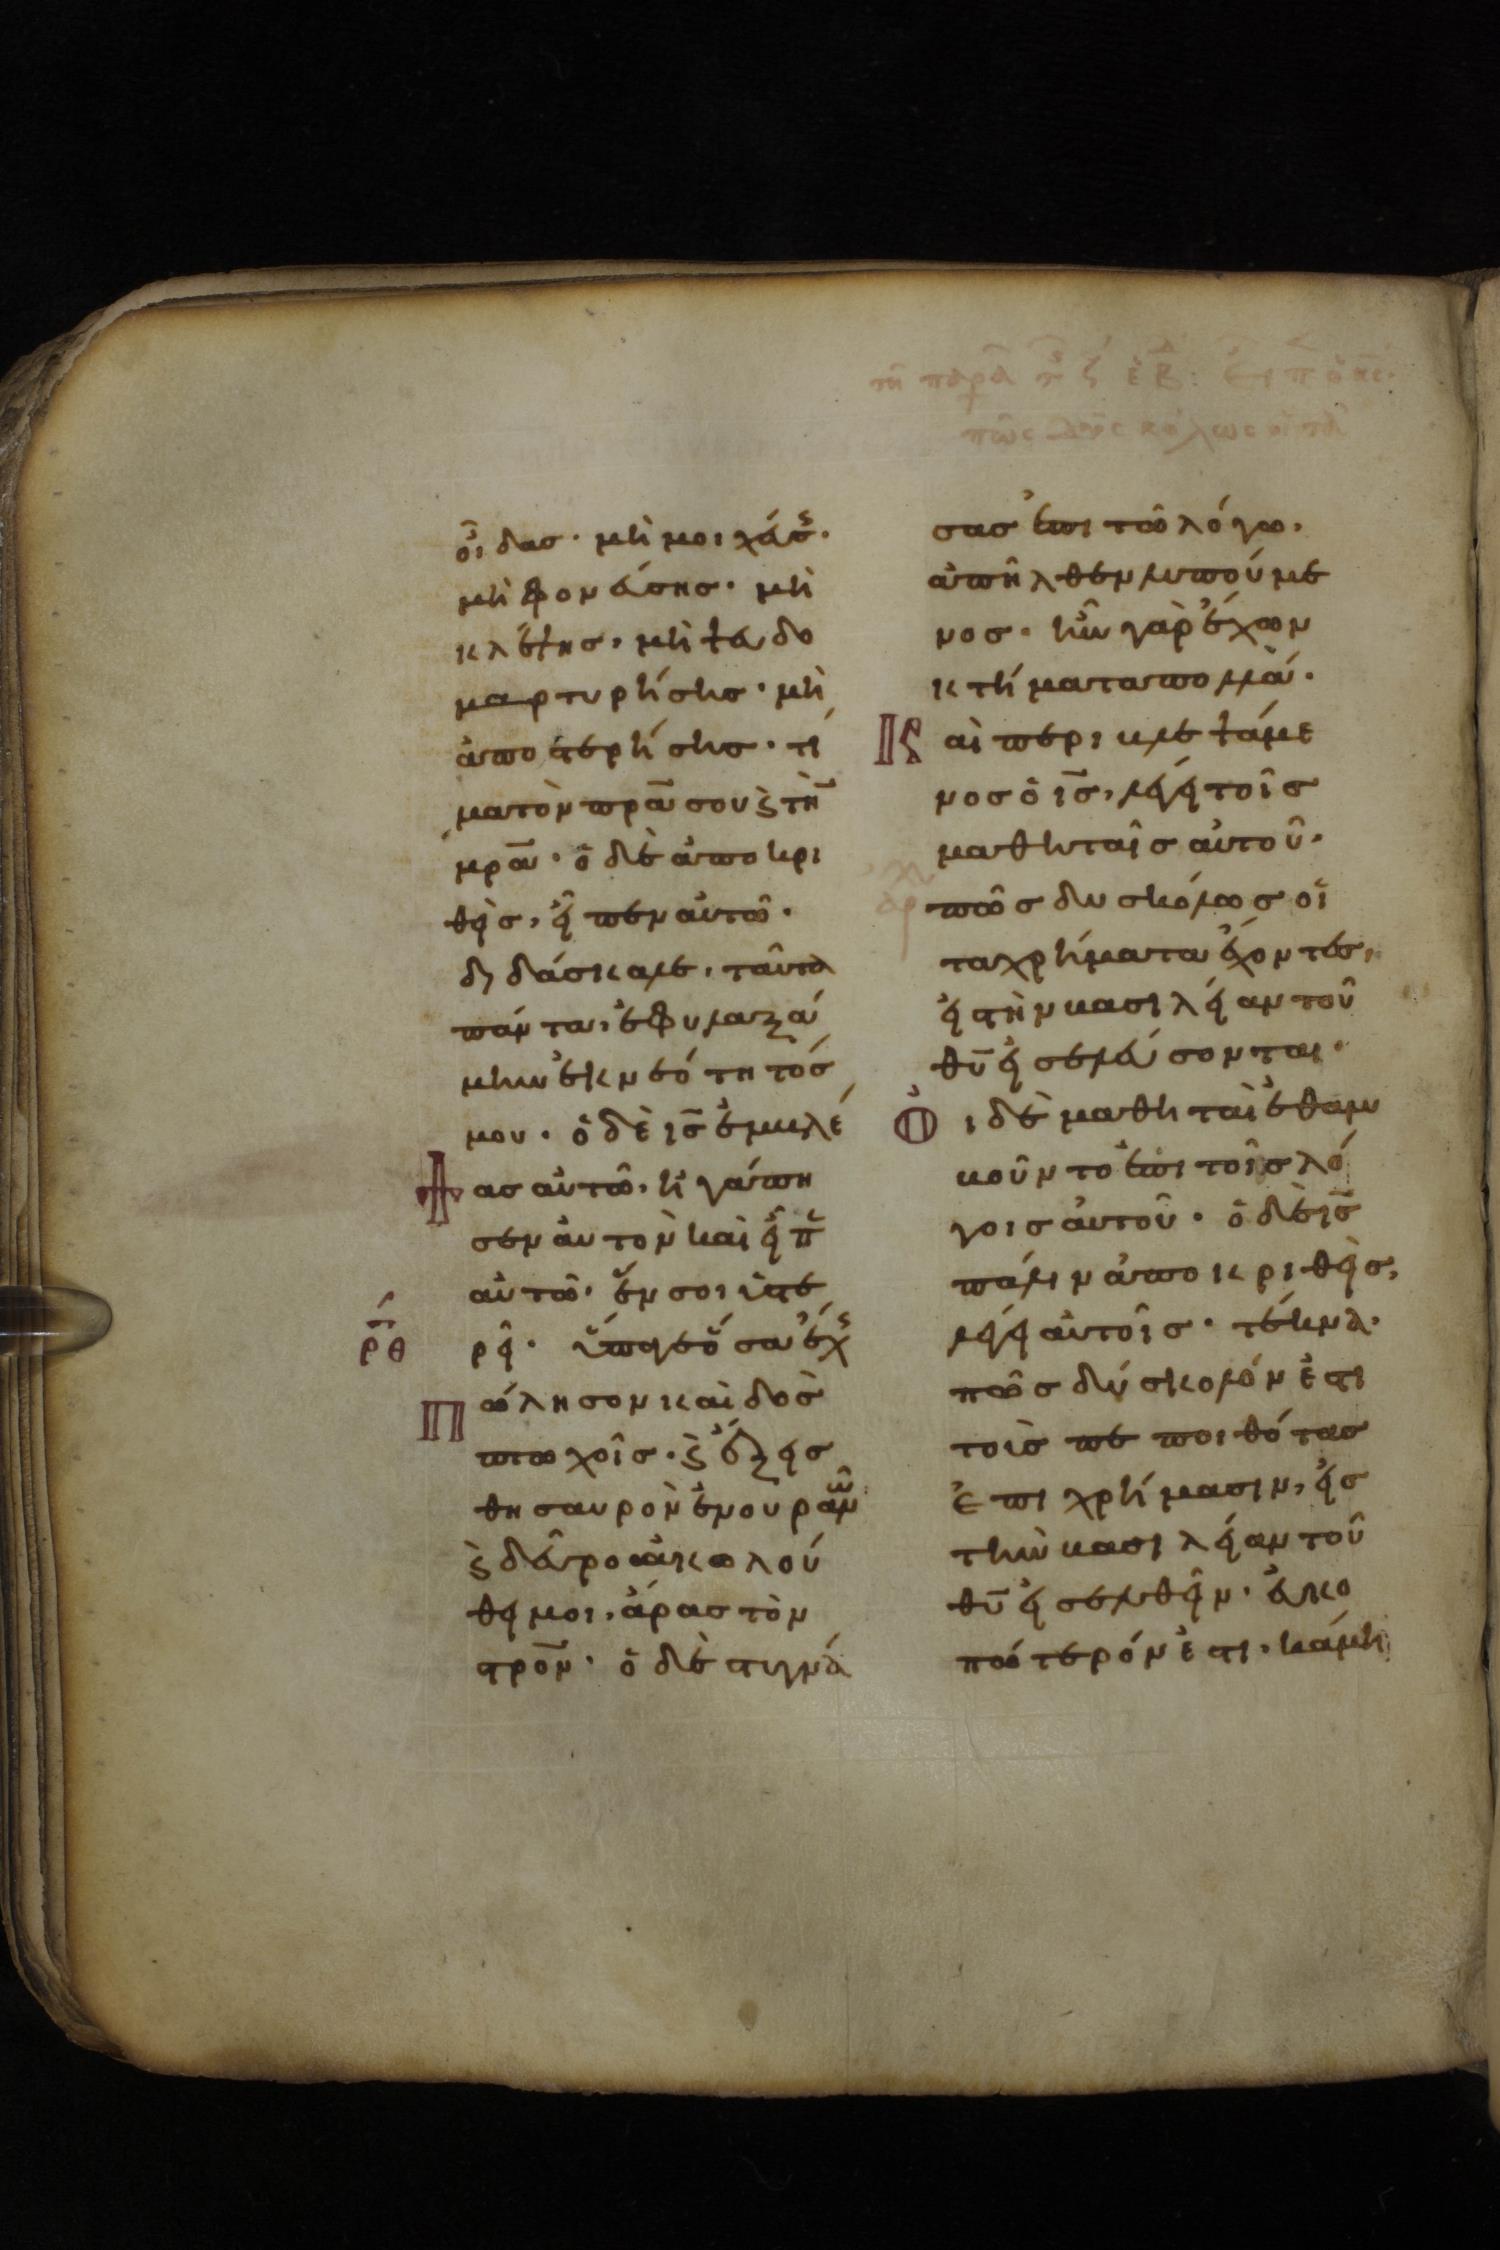 οἶδας· μὴ μοιχεύσ·
μὴ φονεύσης· μὴ
κλέψης, μὴ ψευδο
μαρτυρήσης· μὴ
ἀποστερήσης· τί
μα τὸν πρα̅ σου ϗ τὴν
μρα̅· ὁ δὲ ἀποκρι
θεὶς, εἶπεν αὐτῶ·
διδάσκαλε, ταῦτα
πάντα, ἐφυλαξά
μην ἐκ νεότητός
μου· ὁ δὲ ις̅ ἐμβλέ
ψας αὐτῶ, ἠγάπη
σεν αὐτὸν καὶ εἶπ
αὐτῶ· ἕν σοι ὑστε
ρθ
ρεῖ· ὕπαγε ὅσα ἔχεις
Πώλησον καὶ δὸς
πτωχοῖς· ϗ ἕξεις
θησαυρὸν ἐν οὐρανῶ
ϗ δεῦρο ἀκολού
θει μοι, ἄρας τὸν
στρο̅ν· ὁ δὲ στυγνά
σας ἐπὶ τῶ λόγω,
ἀπῆλθεν λυπούμε
νος· ἦν γὰρ ἔχων
κτήματα πολλά·
Καὶ περιβλεψάμε
νος ὁ ις̅, λέγει τοῖς
μαθηταῖς αὐτοῦ·
πῶς δυσκόλως οἱ
τα χρήματα ἔχοντες,
εἰς τὴν βασιλείαν τοῦ
θυ̅ εἰσελεύσονται·
Οἱ δὲ μαθηταὶ ἐθαμ
βοῦντο ἐπὶ τοῖς λό
γοις αὐτοῦ· ὁ δὲ ις̅
πάλιν ἀποκριθεὶς,
λέγει αὐτοῖς· τέκνα·
πῶς δύσκολόν ἐστι
τοὺς πεποιθότας
ἐπὶ χρήμασιν, εἰς
τὴν βασιλείαν τοῦ
θυ̅ εἰσελθεῖν· εὐκο
πώτερόν ἐστι, κάμη